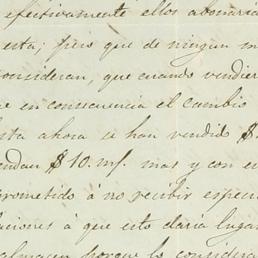 efectivamente ellos abonaria
esta; pero que de ningun m
consideran, que cuando vendier
en consecuencia el cambio
sta ahora se han vendido $
endan $10. mf. mas y con e
prometido á no recibir especi
ciones á que esto daria lugar
almacen porque lo considera